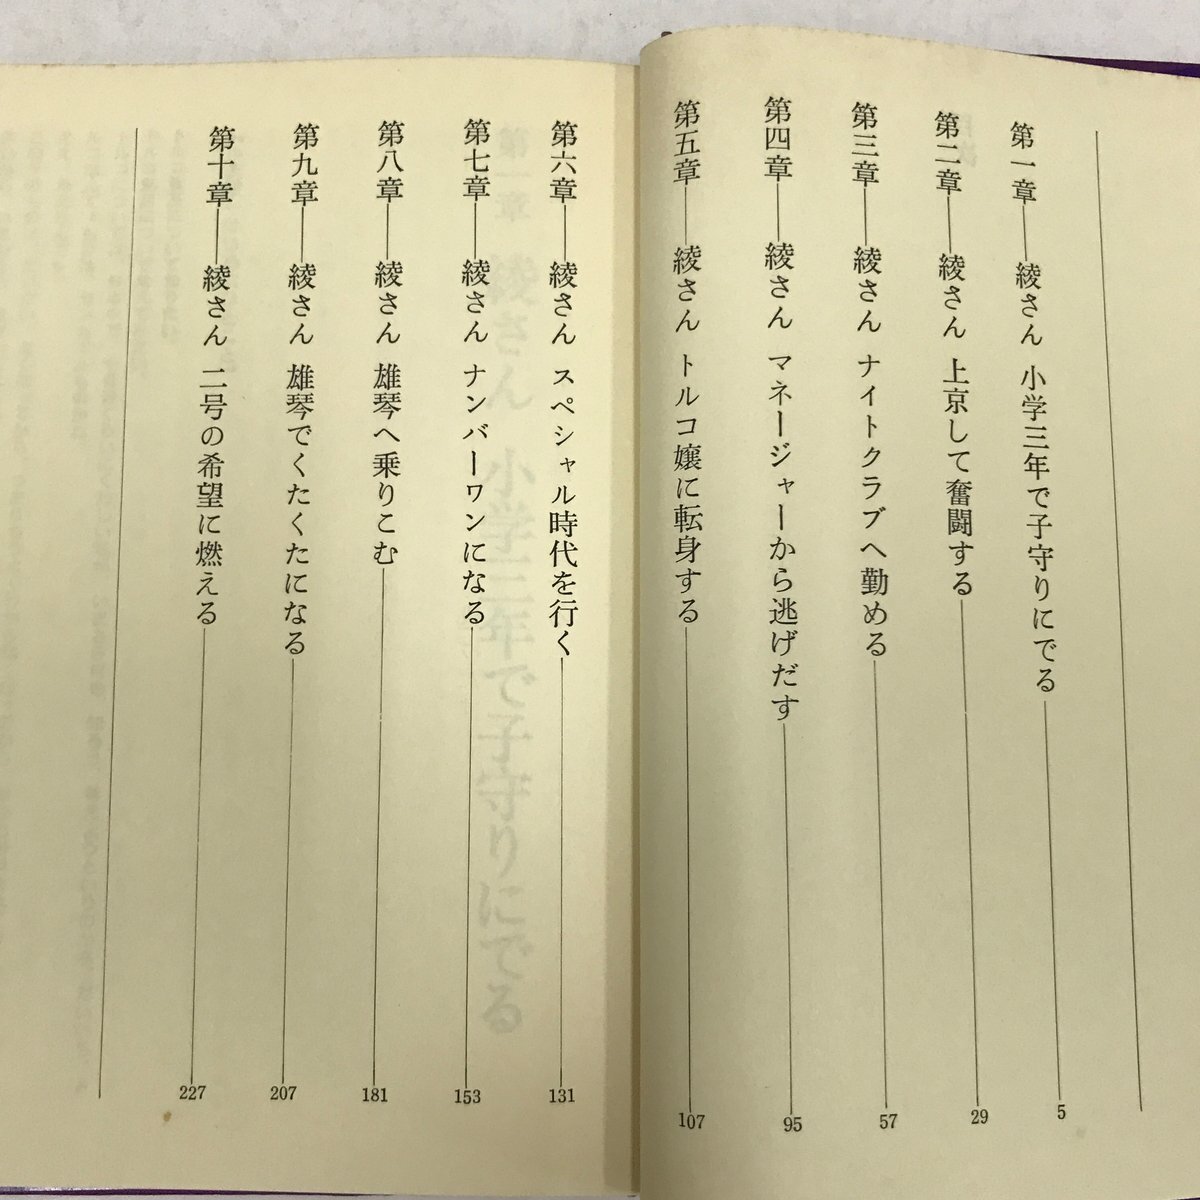 第一章――綾さん 小学三年で子守りにでる――5
第二章――綾さん 上京して奮闘する――29
第三章――綾さん ナイトクラブへ勤める――57
第四章――綾さん マネージャーから逃げだす――95
第五章――綾さん トルコ嬢に転身する――107
第六章――綾さん スペシャル時代を行く――131
第七章――綾さん ナンバーワンになる――153
第八章――綾さん 雄琴へ乗りこむ――181
第九章――綾さん 雄琴でくたくたになる――207
第十章――綾さん 二号の希望に燃える――227